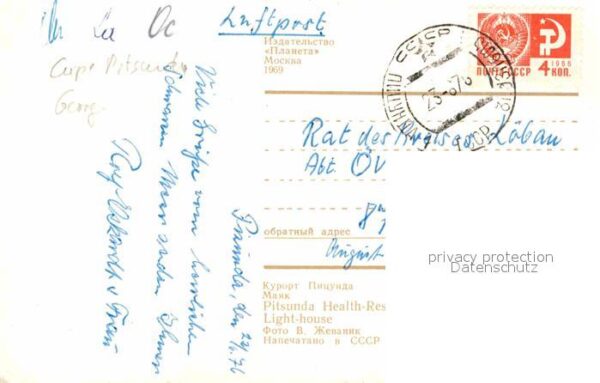 La Oc
Luftpost
Cape Pitsunda
Georg.
Издательство
«Планета»
Москва
1969
ПОЧТА СССР 4 КОП.
1966
СССР
23-8 76
Rat des Kreises Löbau
Abt. ÖV
обратный адрес
August
Pizunda, den 22/8.76
Viele Grüße vom herrlichen
Schwarzen Meer senden Ihnen
u. Frau
Курорт Пицунда
Маяк
Pitsunda Health-Res
Light-house
Фото В. Жеваник
Напечатано в СССР
privacy protection
Datenschutz